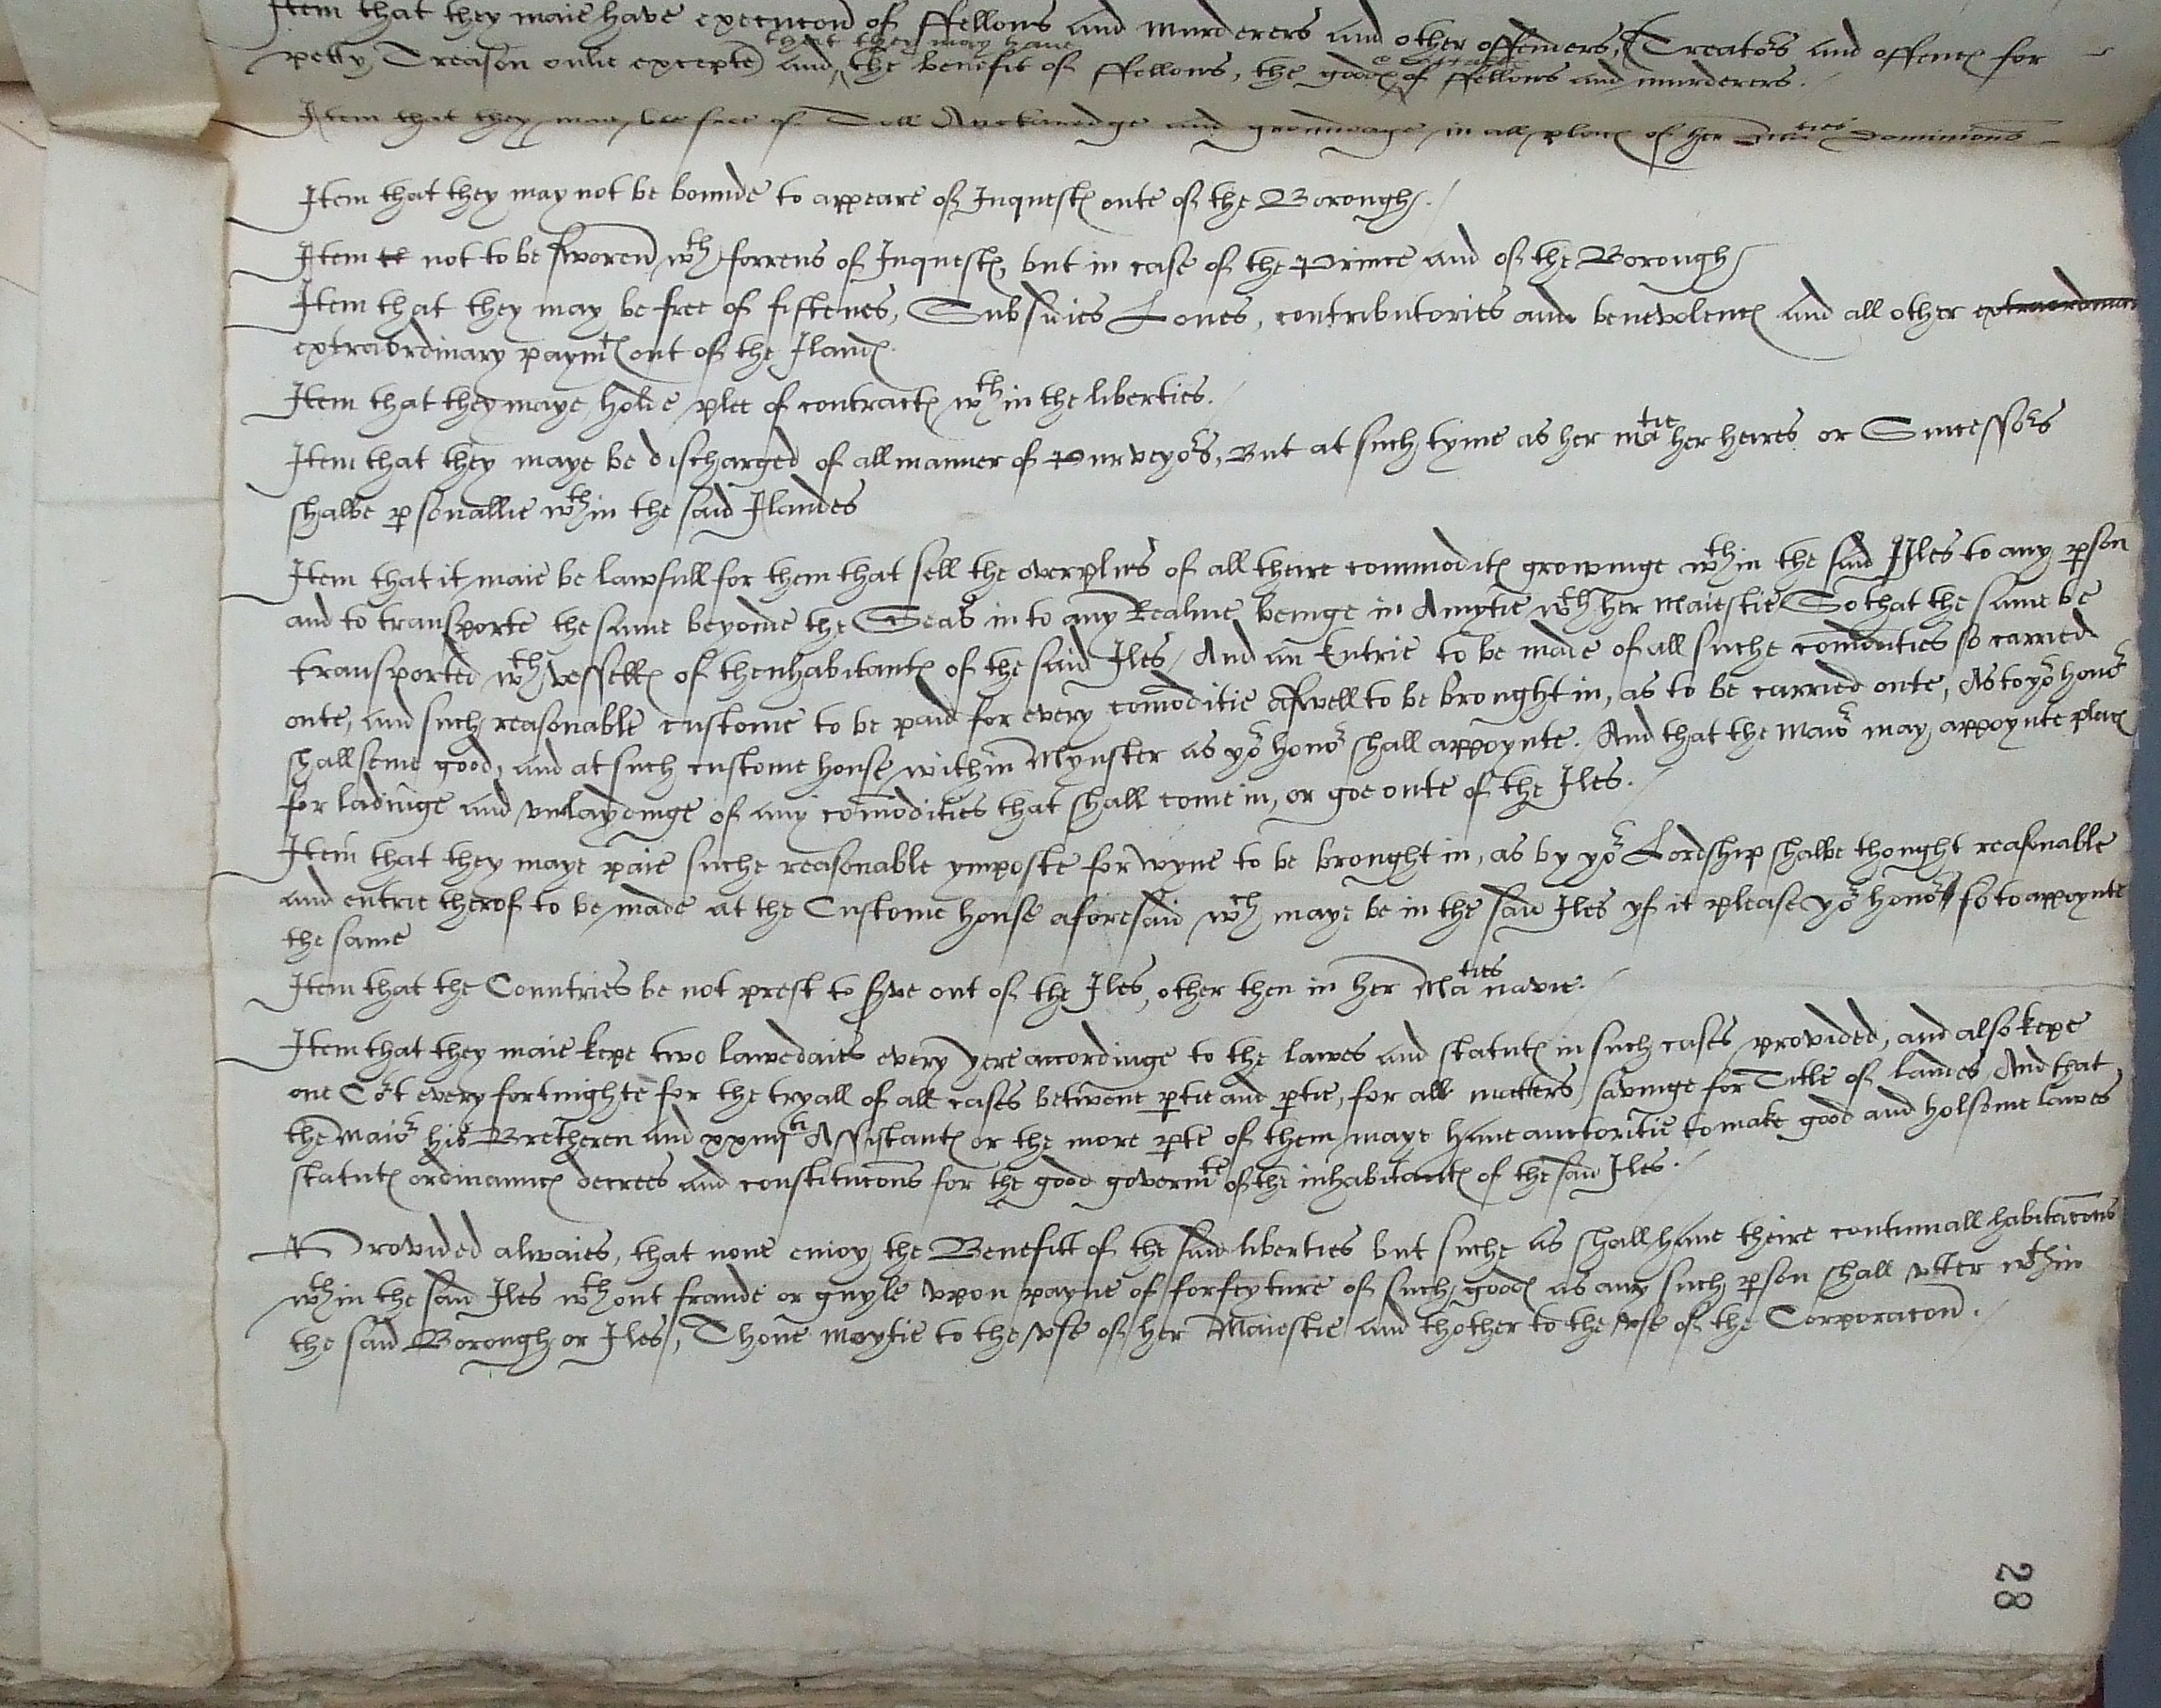 Item that they maie have execucon of ffellons and murderers and other offenders, (Treators and offences for
petty Treason onlie excepte) and that they may have the benefit of ffellons, the goodes & of ffellons and murderers.
Item that they may bee free of Toll Anckaredge and growndage in all places of her maties dominions
Item that they may not be bounde to appeare of Inquestes oute of the Borough.
Item not to be sworen wth forrens of Inquestes, but in case of the Prince and of the Borough
Item that they may be free of fiftenes, Subsidies Lones, contributories and benevolences and all other extraordinar
extraordinary paymtes out of the Ilandes.
Item that they maye holde plee of contractes wthin the liberties.
Item that they maye be discharged of all manner of Purveyors, But at such tyme as her matie her heires or Successors
shalbe personallie wthin the said Ilandes
Item that it maie be lawfull for them that sell the overplus of all theire commodites growinge wthin the said Iles to any person
and to transporte the same beyonde the Seas in to any Realme beinge in Amytie wth her Maiestie So that the same be
transported wth vesselles of thenhabitantes of the said Iles / And an Entrie to be made of all suche comodities so carried
oute, and such reasonable custome to be paid for every comoditie aswell to be brought in, as to be carried oute, As to yor honor
shall seme good, and at such custome house within Mynster as yor honor shall appoynte. And that the Maior may appoynte places
for ladinge and vnlaydinge of any comodities that shall come in, or goe oute of the Iles.
Item that they maye paie suche reasonable ymposte for wyne to be brought in, as by yor Lordship shalbe thought reasonable
and entrie therof to be made at the Custome house aforesaid wch maye be in the said Iles yf it please yor honor so to appoynte
the same
Item that the Countries be not prest to serve out of the Iles, other then in her Maties navie.
Item that they maie kepe two lawedaies every yere accordinge to the lawes and statutes in such cases provided, and also kepe
one Cort every fortnighte for the tryall of all cases betwene partie and partie, for all matters savinge for Title of landes And that
the Maior his Bretheren and xxiiijti Assistantes or the more parte of them maye have auctoritie to make good and holsome lawes
statutes ordinaunces decrees and constitucons for the good govermte of the inhabitantes of the said Iles.
Provided alwaies, that none enioy the Benefitt of the said liberties but suche as shall have theire contynuall habitacons
wthin the said Iles wthout fraude or guyle vpon payne of forfeyture of such goodes as any such person shall vtter wthin
the said Borough or Iles, Thone moytie to the vse of her Maiestie and thother to the vse of the Corporacon.
28